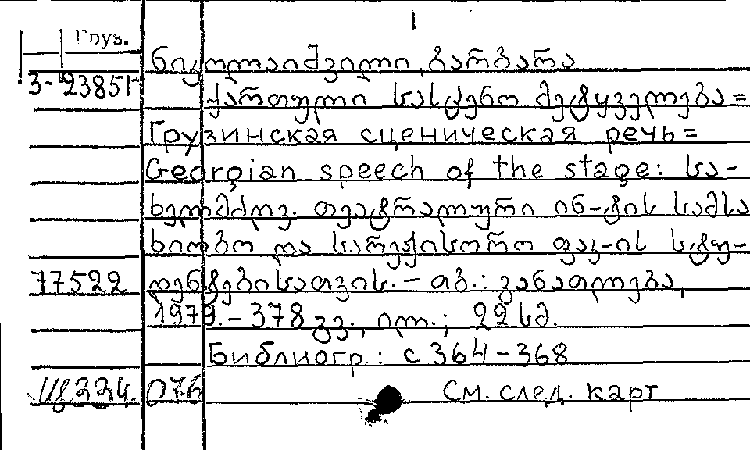 1
Груз.
ნიკოლაიშვილი, ბარბარა
3-23851
ქართული სასცენო მეტყველება =
Грузинская сценическая речь =
Georgian speech of the stage: სა-
ხელმძღვ. თეატრალური ინ-ტის სამსა
ხიობო და სარეჟისორო ფაკ-ის სტუ-
77522 დენტებისათვის. – თბ.: განათლება,
1979. – 378 გვ., ილ.; 22 სმ.
Библиогр.: с 364-368
Щ224.076 См. след. карт